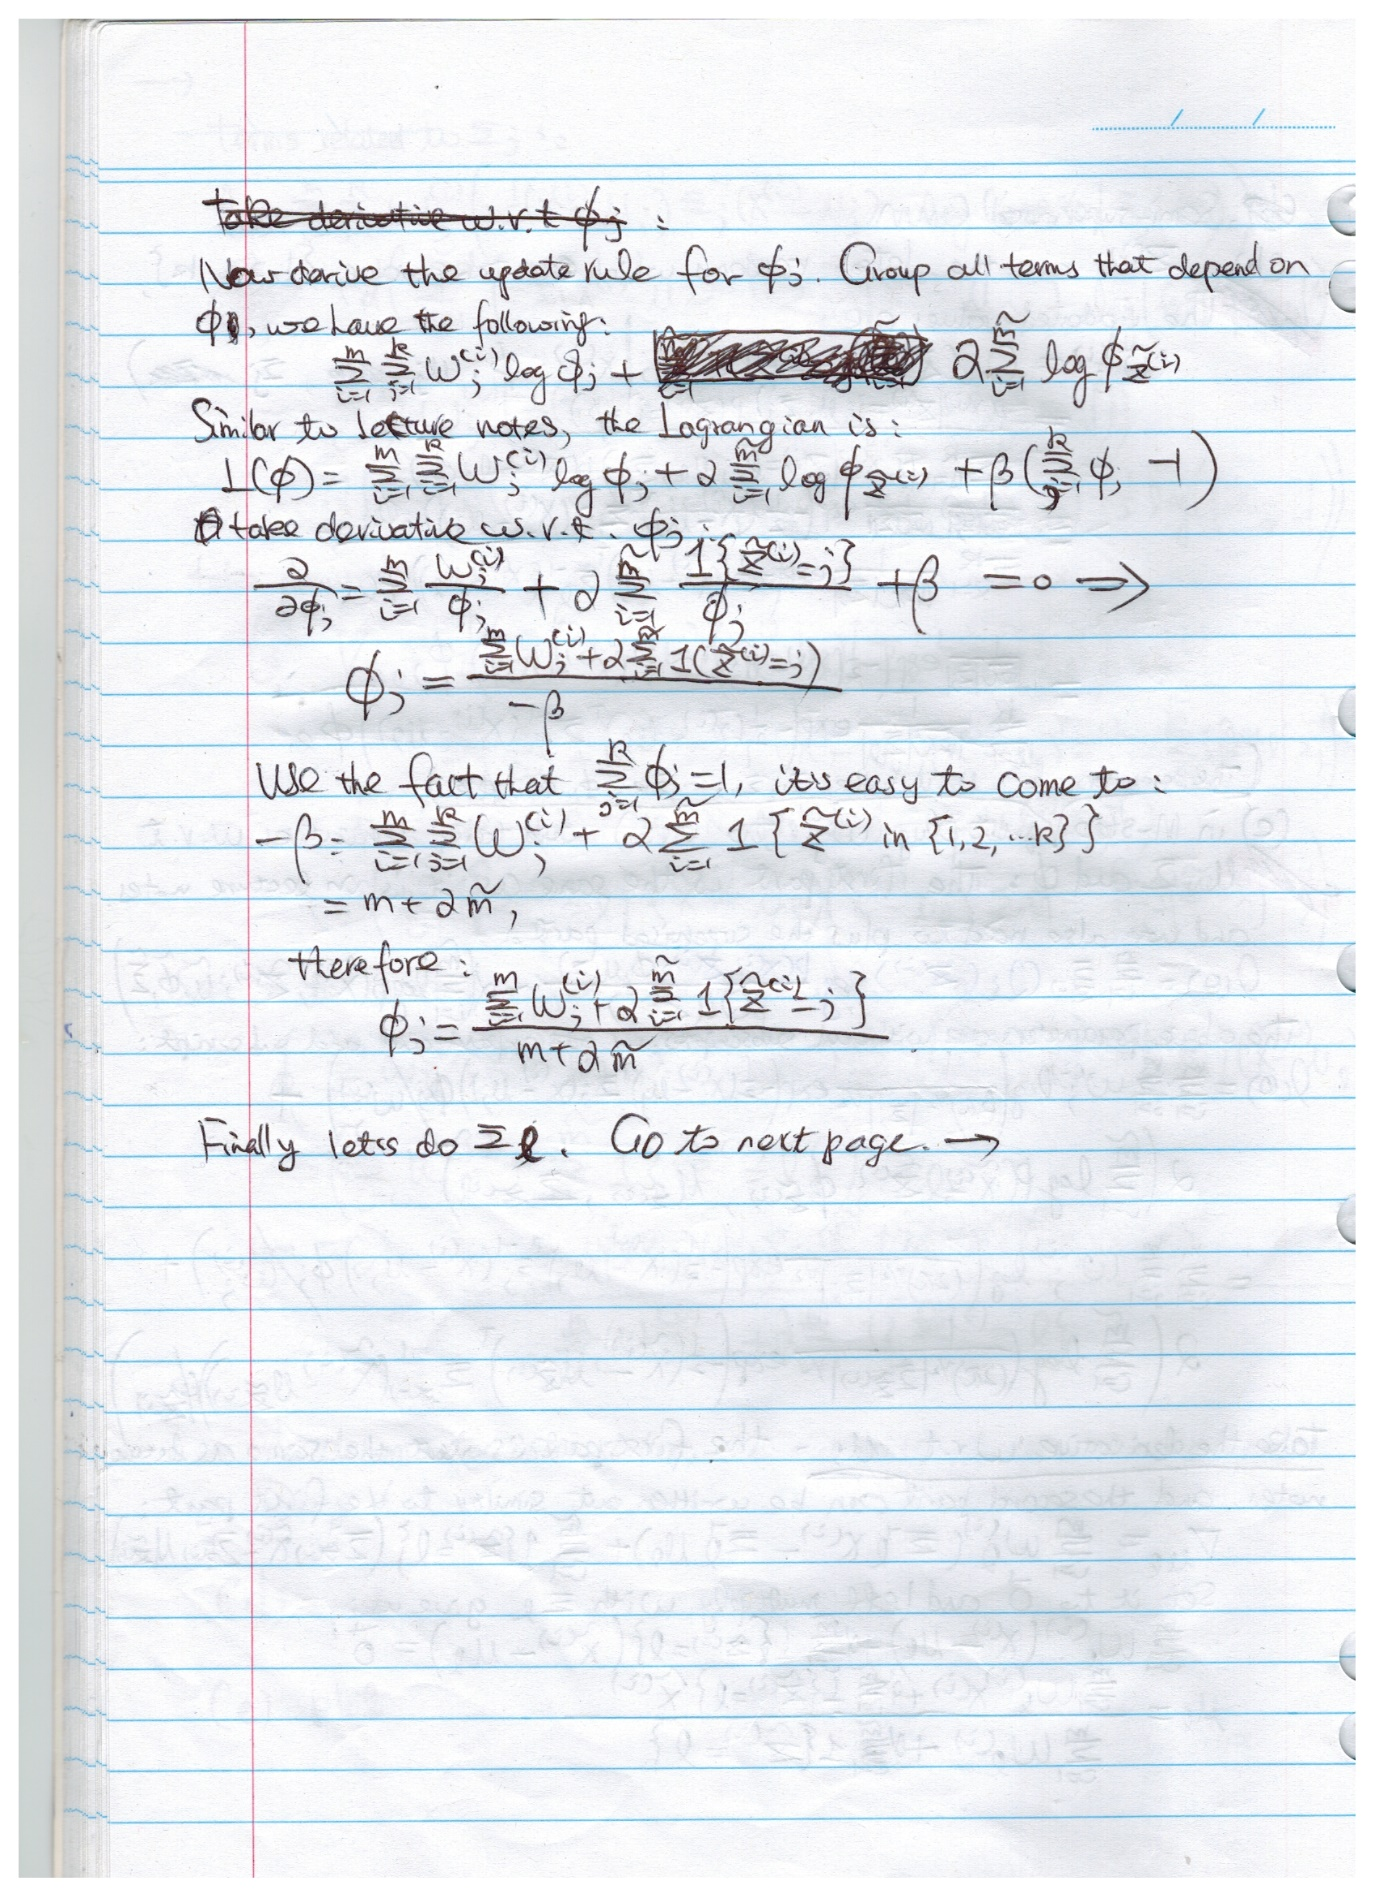 take derivative w.r.t ϕj :
Now derive the update rule for ϕj. Group all terms that depend on
ϕj, we have the following:
∑_{i=1}^{m} ∑_{j=1}^{k} w_j^{(i)} log ϕj + α ∑_{i=1}^{m̃} log ϕ_{z̃^{(i)}}
Similar to lecture notes, the Lagrangian is:
L(ϕ) = ∑_{i=1}^{m} ∑_{j=1}^{k} w_j^{(i)} log ϕj + α ∑_{i=1}^{m̃} log ϕ_{z̃^{(i)}} + β(∑_{j=1}^{k} ϕj -1)
take derivative w.r.t. ϕj :
∂/∂ϕj = ∑_{i=1}^{m} w_j^{(i)}/ϕj + α ∑_{i=1}^{m̃} 1{z̃^{(i)}=j}/ϕj + β = 0 ⇒
ϕj = (∑_{i=1}^{m} w_j^{(i)} + α ∑_{i=1}^{m̃} 1(z̃^{(i)}=j)) / -β
Use the fact that ∑_{j=1}^{k} ϕj =1, it's easy to come to :
-β = ∑_{i=1}^{m} ∑_{j=1}^{k} w_j^{(i)} + α ∑_{i=1}^{m̃} 1{z̃^{(i)} in {1,2,...k}}
= m + α m̃,
therefore :
ϕj = (∑_{i=1}^{m} w_j^{(i)} + α ∑_{i=1}^{m̃} 1{z̃^{(i)}=j}) / (m + α m̃)
Finally let's do Σl. Go to next page. →